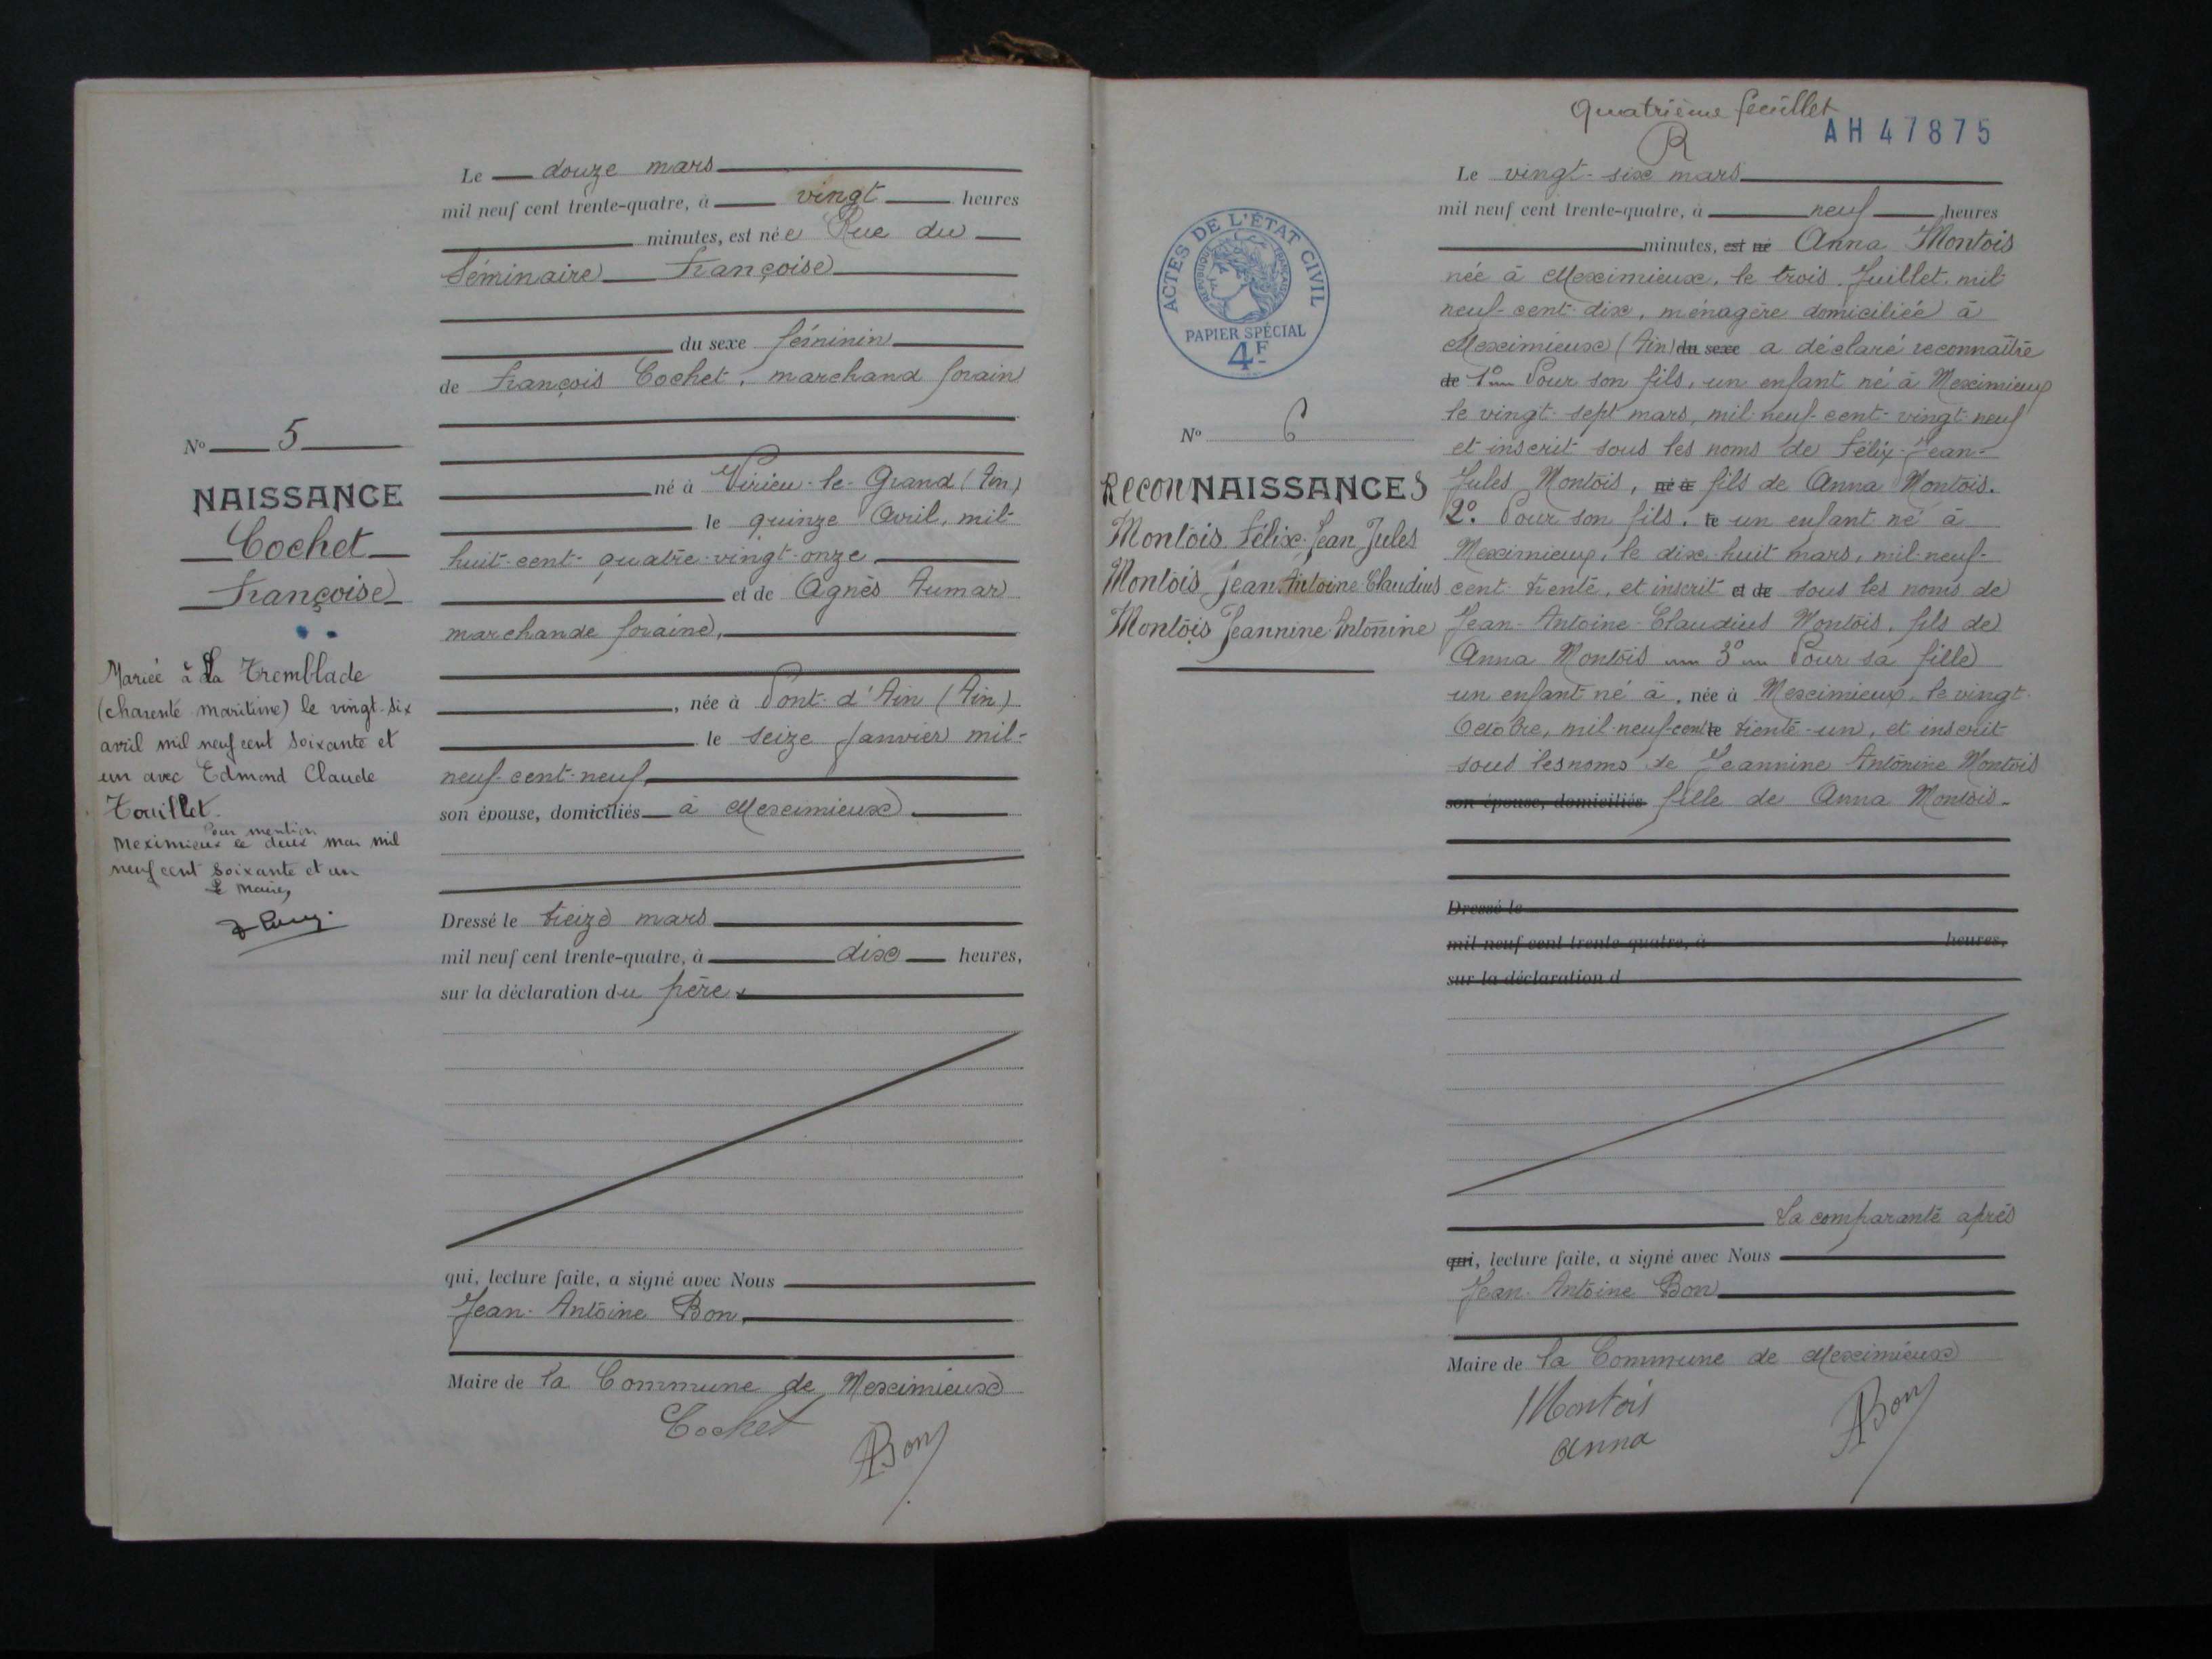 Le douze mars
mil neuf cent trente-quatre, à vingt heures
minutes, est née Rue du
Séminaire Françoise
du sexe féminin
de François Cochet, marchand forain
né à Virieu-le-Grand (Ain)
le quinze Avril, mil-
huit-cent-quatre-vingt-onze,
et de Agnès Aumar
marchande foraine,
, née à Pont-d'Ain (Ain)
le seize Janvier mil-
neuf-cent-neuf,
son épouse, domiciliés à Meximieux.
Dressé le treize mars
mil neuf cent trente-quatre, à dix heures,
sur la déclaration du père.
qui, lecture faite, a signé avec Nous
Jean-Antoine Bon,
Maire de la Commune de Meximieux
Cochet
ABon
No 5
NAISSANCE
Cochet
Françoise
Mariée à La Tremblade
(charente maritime) le vingt-six
avril mil neuf cent soixante et
un avec Edmond Claude
Touillet.
Pour mention
Meximieux le deux mai mil
neuf cent soixante et un
Le Maire,
Quatrième feuillet
R
AH 47875
Le vingt-six mars
mil neuf cent trente-quatre, à neuf heures
minutes, est né Anna Montois
née à Meximieux, le trois Juillet, mil
neuf-cent-dix, ménagère domiciliée à
Meximieux (Ain) du sexe a déclaré reconnaître
de 1° Pour son fils, un enfant né à Meximieux
le vingt-sept mars, mil-neuf-cent-vingt-neuf
et inscrit sous les noms de Félix-Jean-
Jules Montois, né à fils de Anna Montois.
2° Pour son fils, le un enfant né à
Meximieux, le dix-huit mars, mil-neuf-
cent-trente, et inscrit et de sous les noms de
Jean-Antoine-Claudius Montois, fils de
Anna Montois 3° Pour sa fille
un enfant né à, née à Meximieux, le vingt
Octobre, mil-neuf-cent le trente-un, et inscrit
sous les noms de Jeannine Antonine Montois
son épouse, domiciliés fille de Anna Montois.
Dressé le
mil neuf cent trente-quatre, à heures,
sur la déclaration d
La comparante après
qui, lecture faite, a signé avec Nous
Jean-Antoine Bon
Maire de la Commune de Meximieux
Montois
Anna
ABon
ACTES DE L'ÉTAT CIVIL
RÉPUBLIQUE FRANÇAISE
PAPIER SPÉCIAL
4F
No 6
ReconNAISSANCES
Montois Félix-Jean Jules
Montois Jean Antoine Claudius
Montois Jeannine Antonine